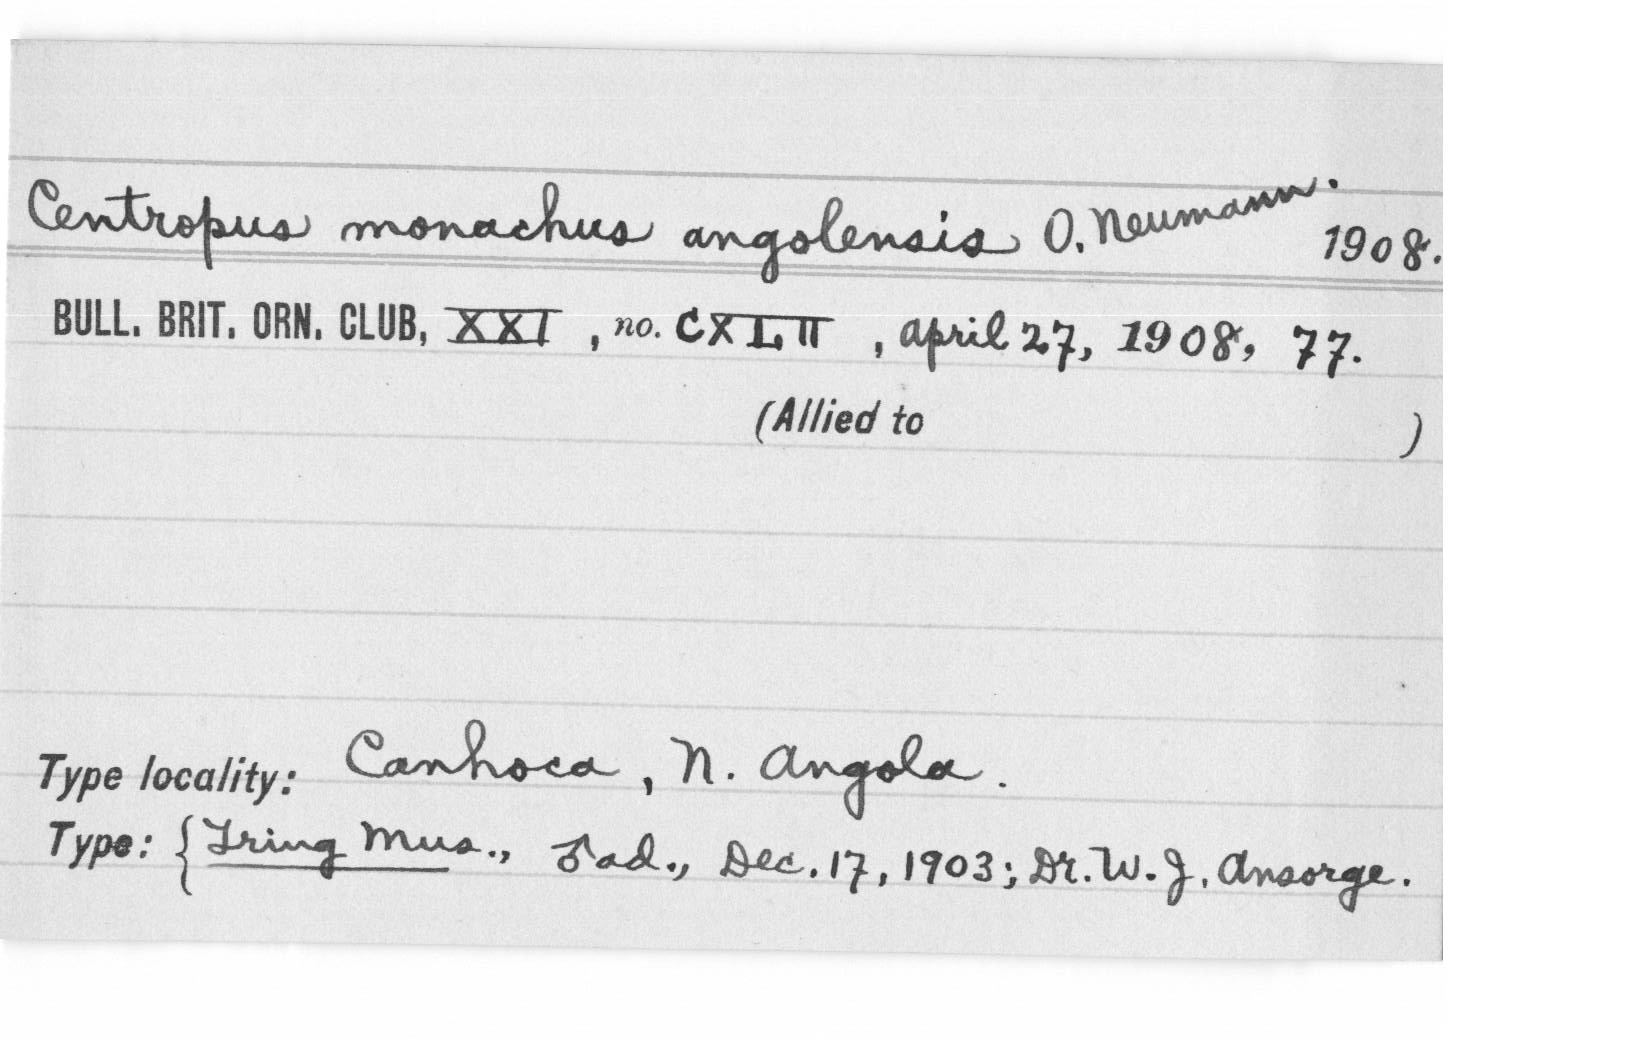 Centropus monachus angolensis O. Neumann.
1908.
BULL. BRIT. ORN. CLUB, XXI, no. CXLII, April 27, 1908, 77.
(Allied to )
Type locality: Canhoca, N. Angola.
Type: { Tring Mus., ♂ad., Dec. 17, 1903; Dr. W. J. Ansorge.